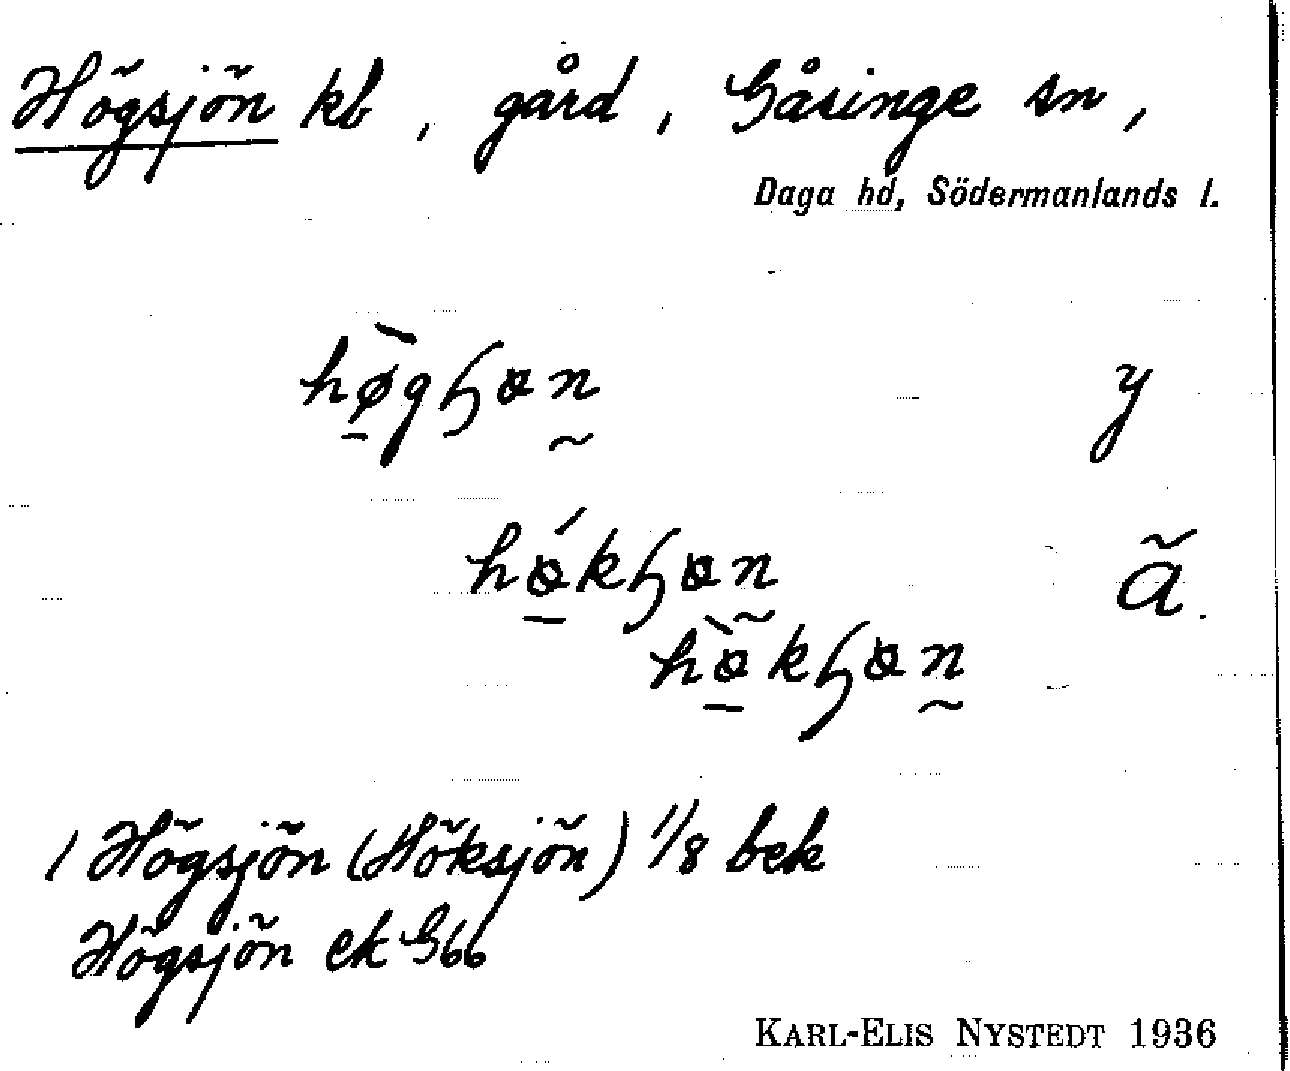 Högsjön kb, gård, Gåsinge sn,
Daga hd, Södermanlands l.
y
ä.
1 Högsjön (Höksjön) 1/8 bek
Högsjön ek G66
KARL-ELIS NYSTEDT 1936